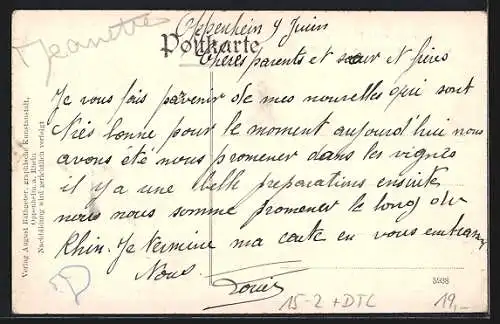 Jeanette
Oppenheim 9 Juin
Postkarte
Chères parents et sœur et frères
Je vous fais parvenir de mes nouvelles qui sont
très bonne pour le moment aujourd'hui nous
avons été nous promener dans les vignes
il y a une belle preparations ensuite
nous nous somme promener le long du
Rhin. Je termine ma carte en vous embrassant
Nous.
Verlag August Rithueter, graphische Kunstanstalt,
Oppenheim a. Rhein
Nachbildung wird gerichtlich verfolgt
5938
15-2 + DTC
19,-